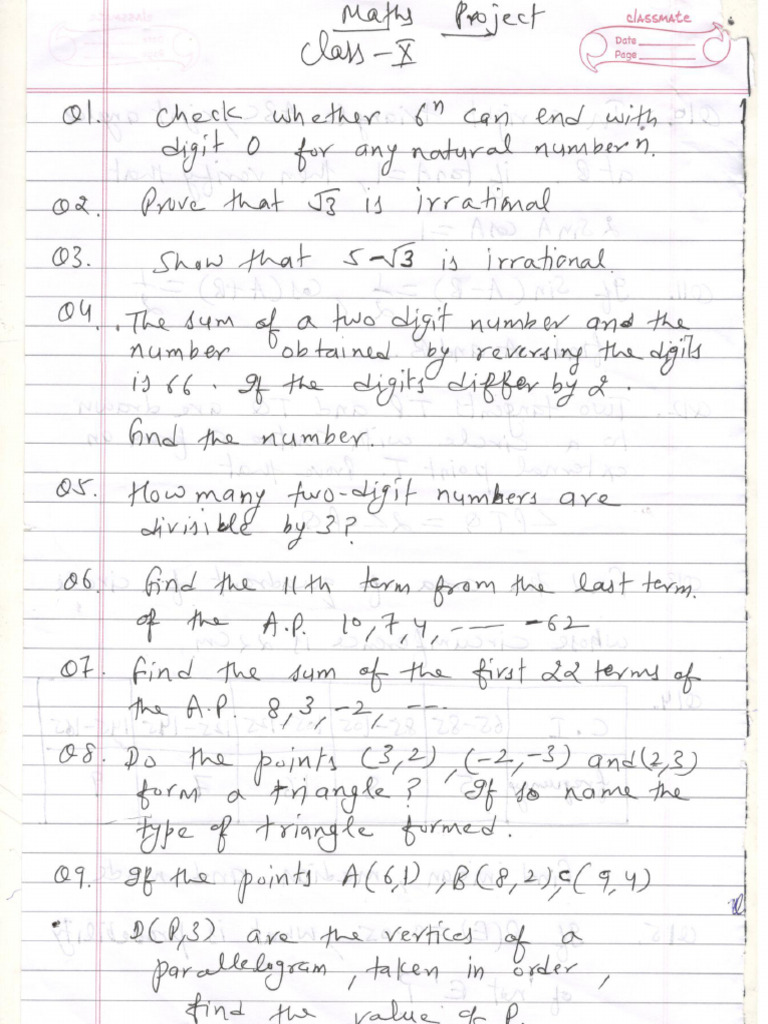 Maths Project
classmate
Date
Page
Class - X
Q1. Check whether 6ⁿ can end with
digit 0 for any natural number n.
Q2. Prove that √3 is irrational
Q3. Show that 5-√3 is irrational.
Q4. The sum of a two digit number and the
number obtained by reversing the digits
is 66. If the digits differ by 2.
find the number.
Q5. How many two-digit numbers are
divisible by 3?
Q6. find the 11th term from the last term.
of the A.P. 10, 7, 4, --- -62
Q7. find the sum of the first 22 terms of
the A.P. 8, 3, -2, ---
Q8. Do the points (3,2), (-2,-3) and (2,3)
form a triangle? If so name the
type of triangle formed.
Q9. If the points A(6,1), B(8,2), C(9,4)
D(P,3) are the vertices of a
parallelogram, taken in order,
find the value of P.